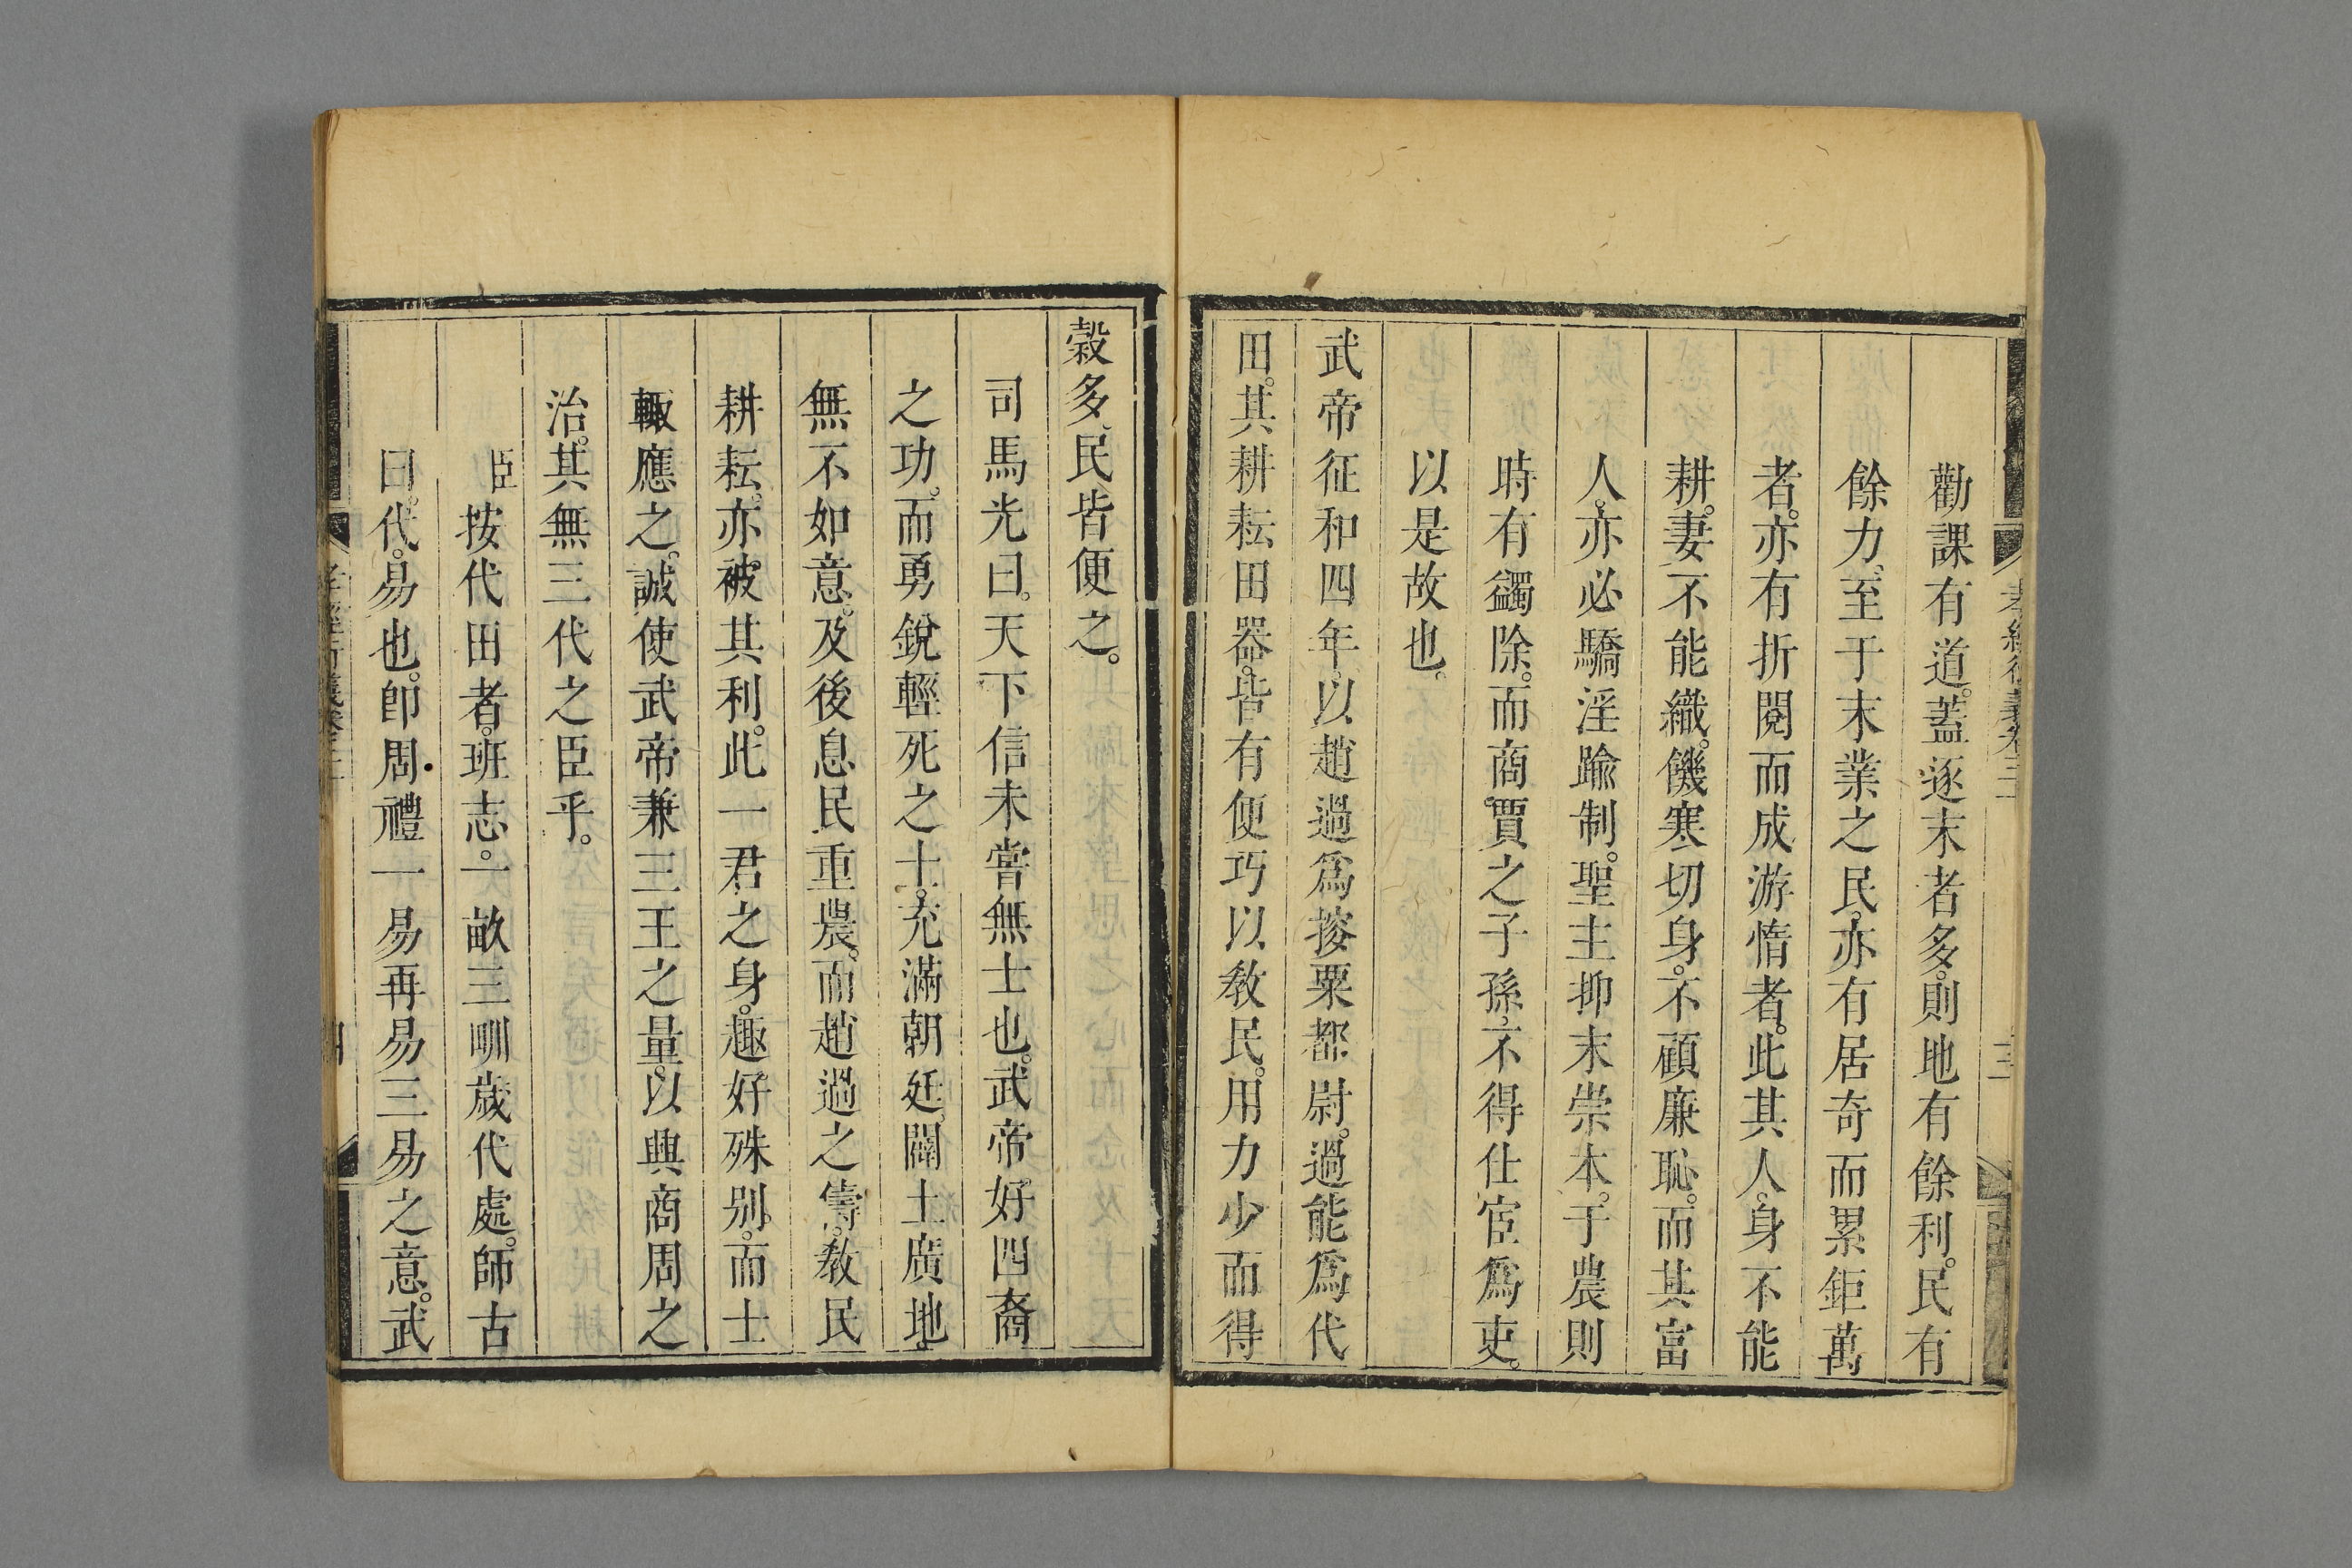 勸課有道。蓋逐末者多。則地有餘利。民有
餘力。至于末業之民。亦有居奇而累鉅萬
者。亦有折閱而成游惰者。此其人。身不能
耕。妻不能織。饑寒切身。不顧廉恥。而其富
人。亦必驕淫踰制。聖主抑末崇本。于農則
時有蠲除。而商賈之子孫。不得仕宦爲吏。
以是故也。
武帝征和四年。以趙過爲搜粟都尉。過能爲代
田。其耕耘田器。皆有便巧以敎民。用力少而得
穀多。民皆便之。
司馬光曰。天下信未嘗無士也。武帝好四裔
之功。而勇銳輕死之士。充滿朝廷。闢土廣地。
無不如意。及後息民重農。而趙過之儔。敎民
耕耘。亦被其利。此一君之身。趣好殊别。而士
輙應之。誠使武帝兼三王之量。以興商周之
治。其無三代之臣乎。
臣按代田者。班志。一畝三甽歲代處。師古
曰。代。易也。卽周禮一易再易三易之意。武